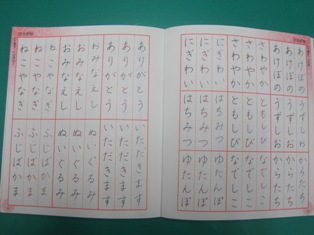 あけぼの うずしお からたち
あけぼの うずしお からたち
あけぼの うずしお からたち
さわやか ともしび なでしこ
さわやか ともしび なでしこ
さわやか ともしび なでしこ
にぎわい はちみつ ゆたんぽ
にぎわい はちみつ ゆたんぽ
にぎわい はちみつ ゆたんぽ
ありがとう いただきます
ありがとう いただきます
ありがとう いただきます
おみなえし ぬいぐるみ
おみなえし ぬいぐるみ
おみなえし ぬいぐるみ
ねこやなぎ ふじばかま
ねこやなぎ ふじばかま
ねこやなぎ ふじばかま